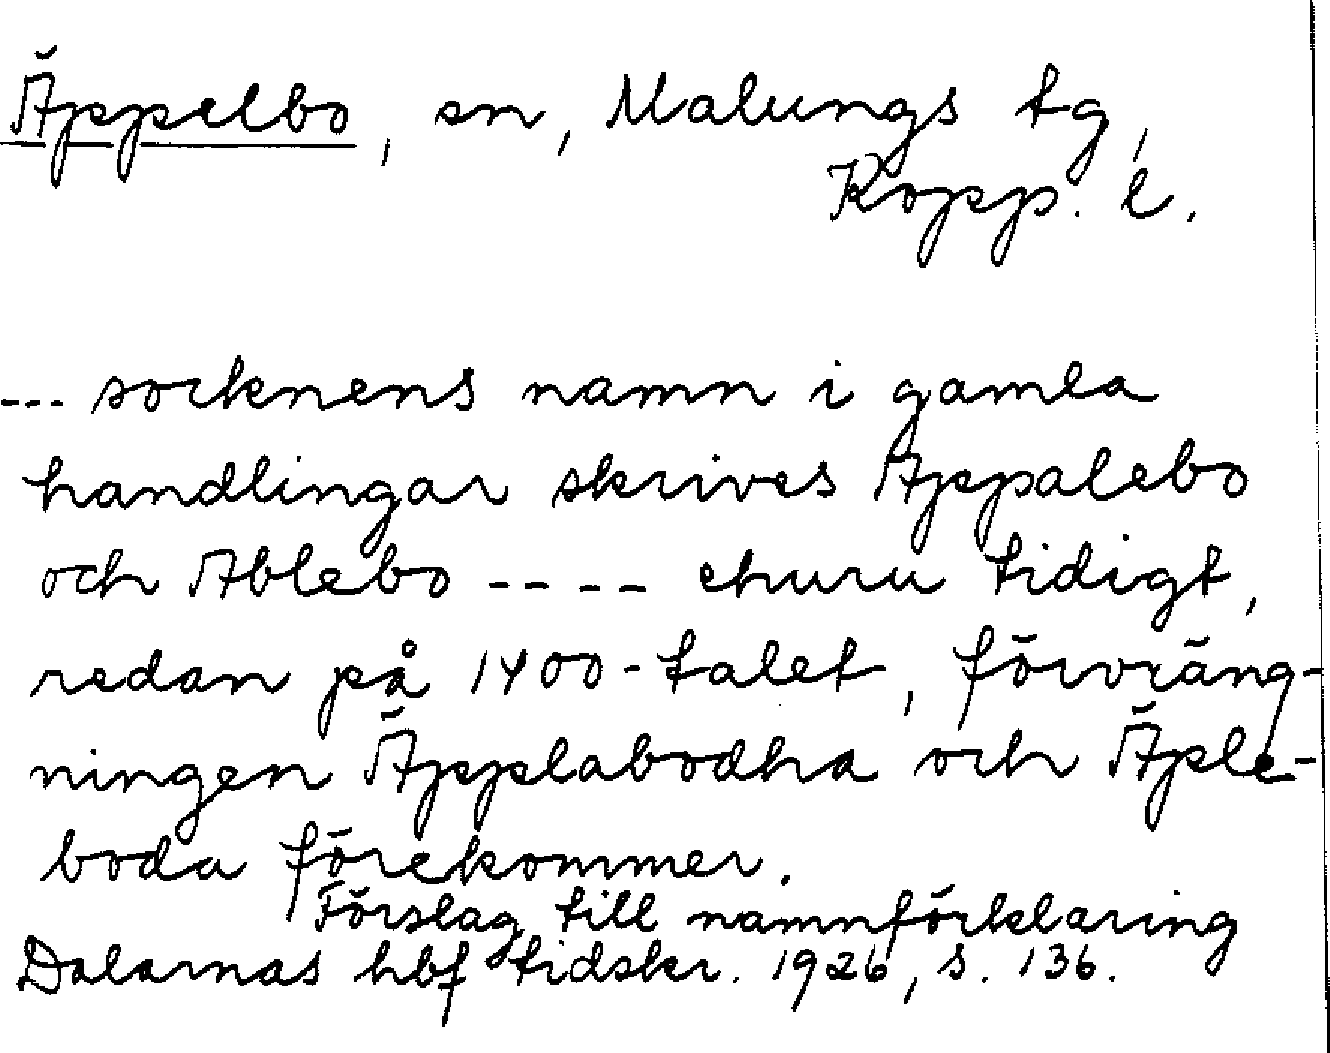 Äppelbo, sn, Malungs tg,
Kopp. l.
--- socknens namn i gamla
handlingar skrives Appalebo
och Ablebo ---- ehuru tidigt,
redan på 1400-talet, förvräng-
ningen Äpplabodha och Äple-
boda förekommer.
Förslag till namnförklaring
Dalarnas hbf tidskr. 1926, s. 136.